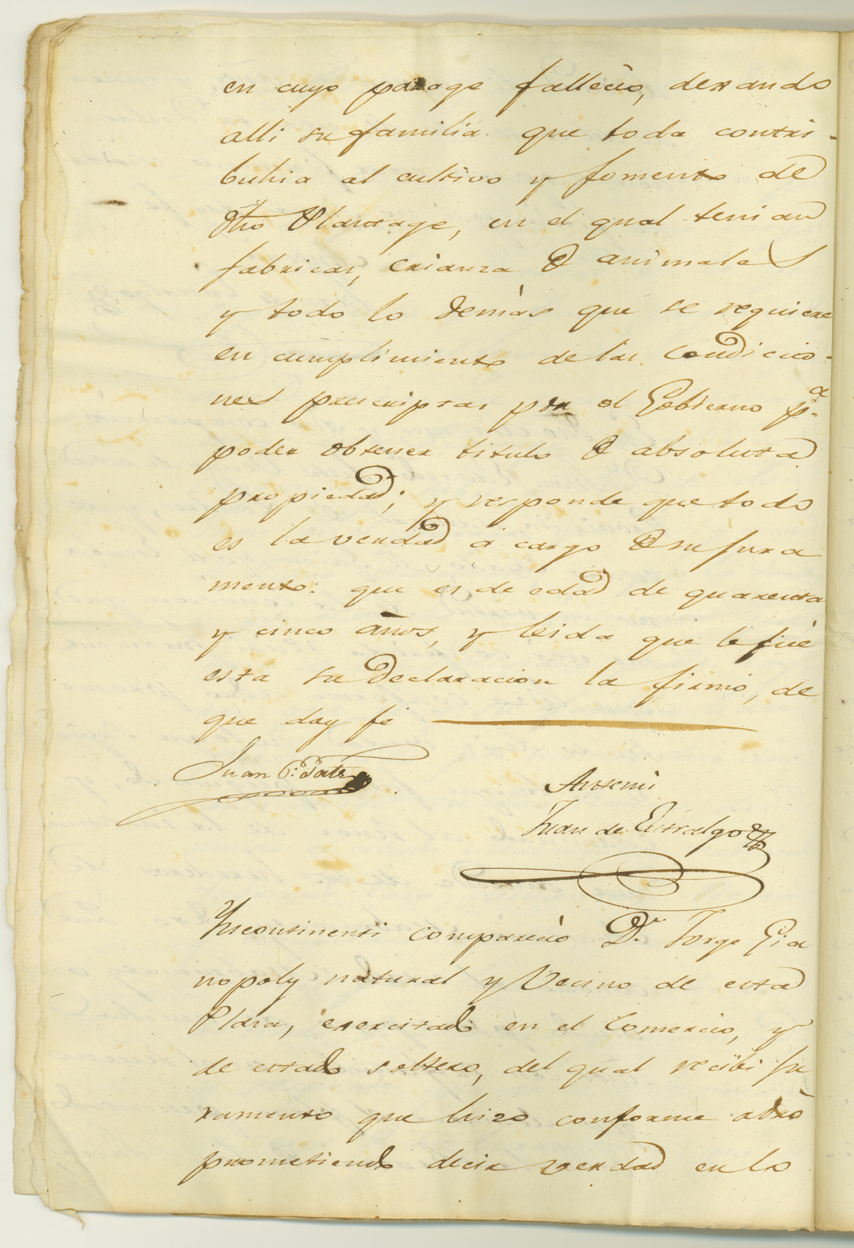 en cuyo parage falleció, dexando
alli su familia que toda contri-
buhia al cultivo y fomento de
dho Parage, en el qual tenian
fabricas, crianza de animales
y todo lo demàs que se requiere
en cumplimiento de las condicio-
nes prescriptas por el Gobierno pa.
poder obtener titulo de absoluta
propiedad; y responde que todo
es la verdad à cargo de su jura
mento: que es de edad de quarenta
y cinco años, y leida que le fué
esta su declaracion la firmó, de
que doy fe
Juan
Antemi
Juan de Entralgo
Yncontinenti compareció Dn. Jorge Gia
nopoly natural y Vecino de esta
Plaza, exercitado en el Comercio, y
de estado soltero, del qual recibi ju
ramento que hizo conforme a dro
prometiendo decir verdad en lo